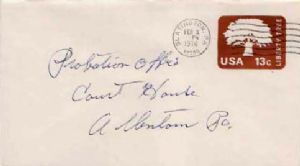 SLATINGTON, PA.
FEB 3
PM
1976
LIBERTY TREE
USA 13c
Probation Office
Court House
Allentown Pa.